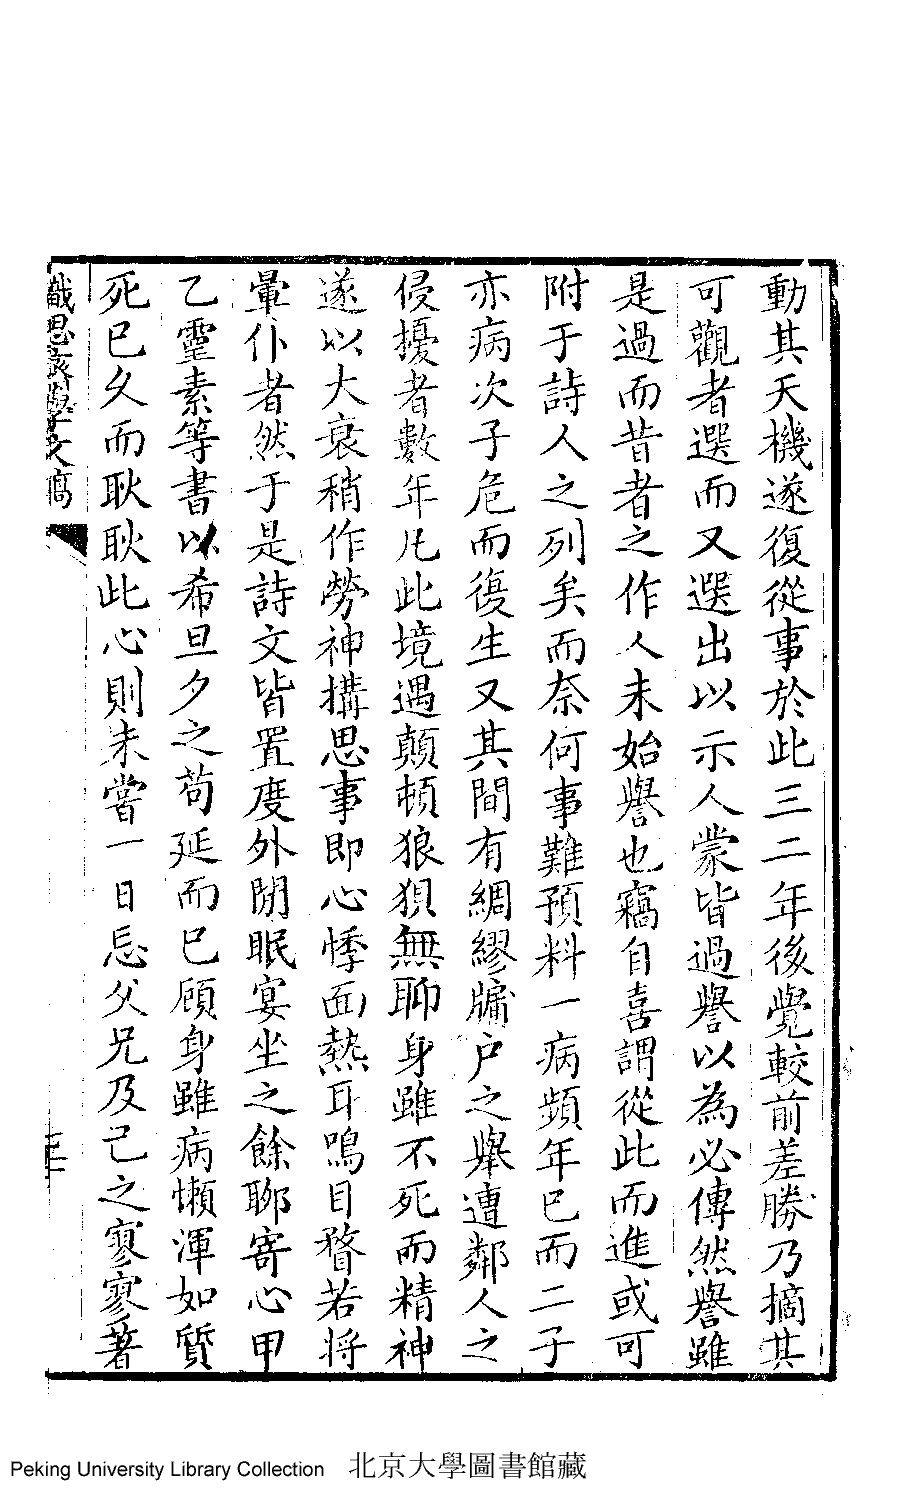 動其天機遂復從事於此三二年後覺較前差勝乃摘其
可觀者選而又選出以示人蒙皆過譽以為必傳然譽雖
是過而昔者之作人未始譽也竊自喜謂從此而進或可
附于詩人之列矣而奈何事難預料一病頻年已而二子
亦病次子危而復生又其間有綢繆牖户之舉遭鄰人之
侵擾者數年凡此境遇顛頓狼狽無聊身雖不死而精神
遂以大衰稍作勞神搆思事即心悸面熱耳鳴目瞀若將
暈仆者然于是詩文皆置度外閒眠宴坐之餘聊寄心甲
乙靈素等書以希旦夕之苟延而已顧身雖病懶渾如質
死已久而耿耿此心則未嘗一日忘父兄及己之寥寥著
織思齋學文稿
Peking University Library Collection 北京大學圖書館藏